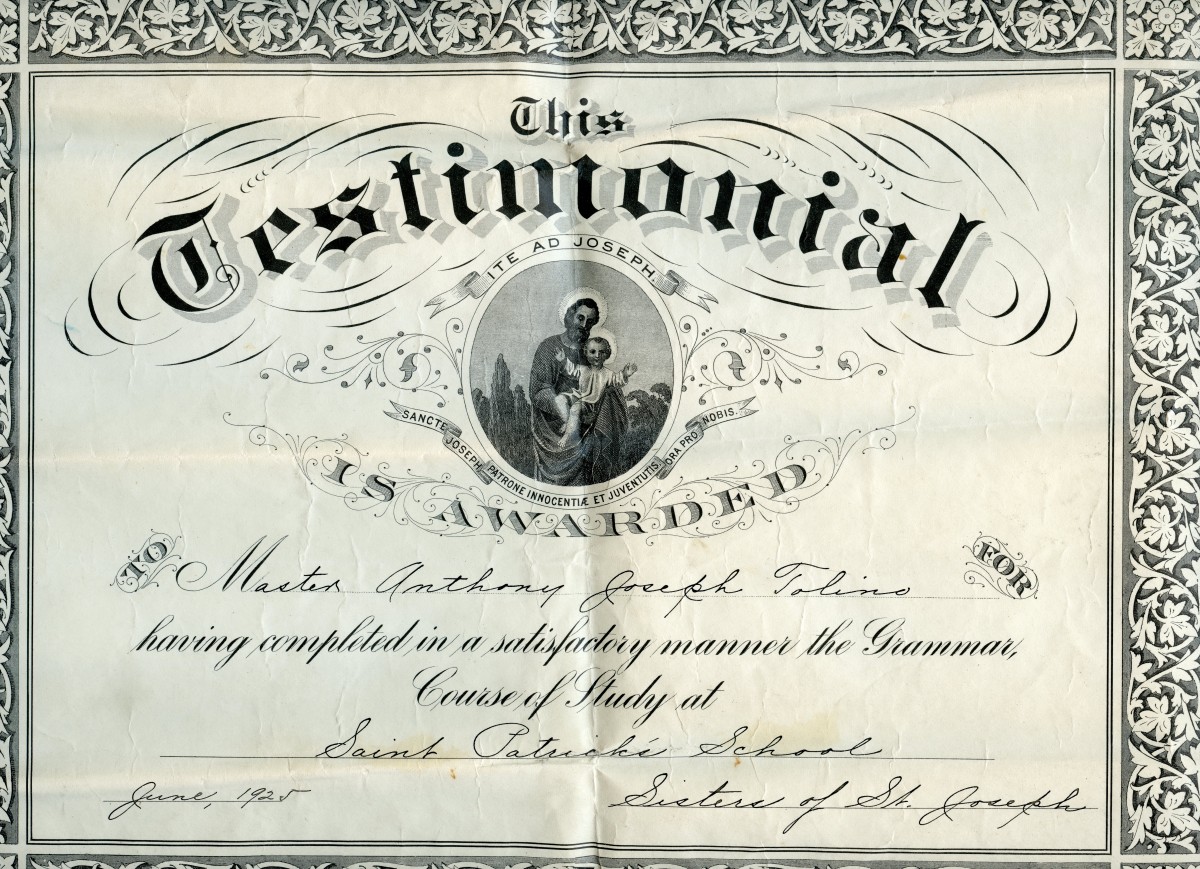 This
Testimonial
ITE AD JOSEPH.
SANCTE JOSEPH, PATRONE INNOCENTIÆ ET JUVENTUTIS, ORA PRO NOBIS.
IS AWARDED
TO Master Anthony Joseph Tolino FOR
having completed in a satisfactory manner the Grammar,
Course of Study at
Saint Patrick's School
June, 1925 Sisters of St. Joseph